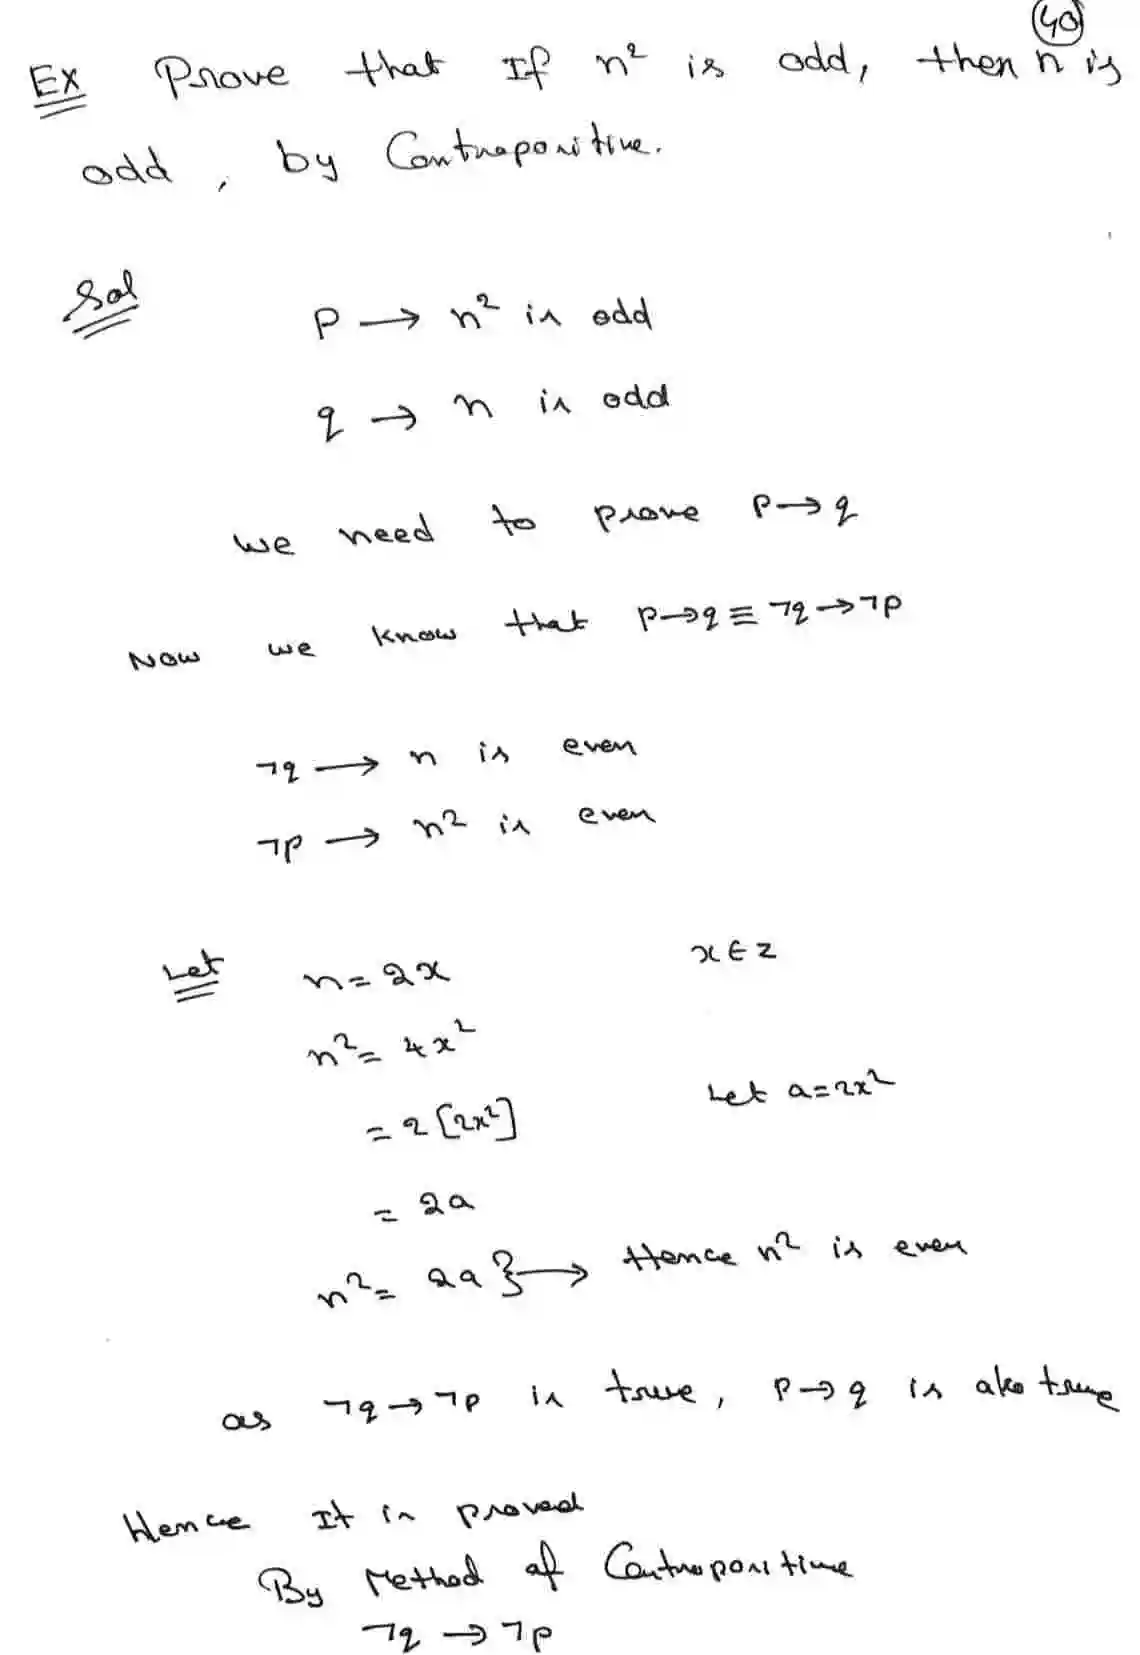 40
Ex Prove that If n² is odd, then n is
odd, by Contrapositive.
Sol
P → n² is odd
q → n is odd
we need to prove P→q
Now we know that P→q ≡ ¬q→¬p
¬q → n is even
¬p → n² is even
Let n = 2x x ∈ z
n² = 4x²
= 2[2x²] Let a = 2x²
= 2a
n² = 2a } → Hence n² is even
as ¬q→¬p is true, P→q is also true
Hence It is proved
By Method of Contrapositive
¬q → ¬p